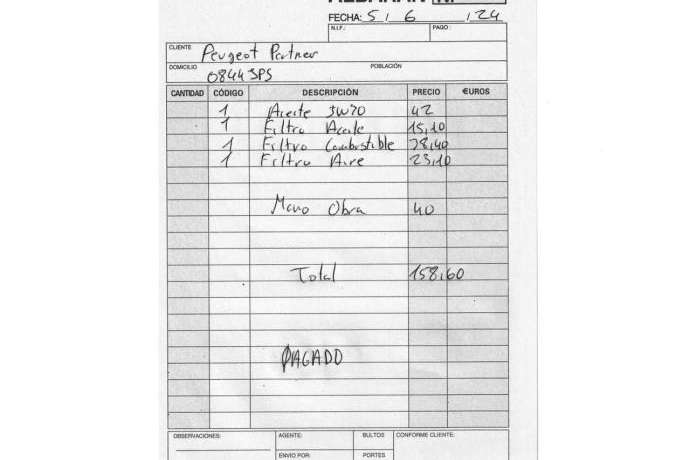 ALBARÁN Nº
FECHA: 5 / 6 / 24
N.I.F.: PAGO:
CLIENTE Peugeot Partner
DOMICILIO 0844 JPS POBLACIÓN
CANTIDAD CÓDIGO DESCRIPCIÓN PRECIO €UROS
1 Aceite 5W30 42
1 Filtro Aceite 15,10
1 Filtro Combustible 38,40
1 Filtro Aire 23,10
Mano Obra 40
Total 158,60
PAGADO
OBSERVACIONES: AGENTE: BULTOS CONFORME CLIENTE:
ENVIO POR: PORTES